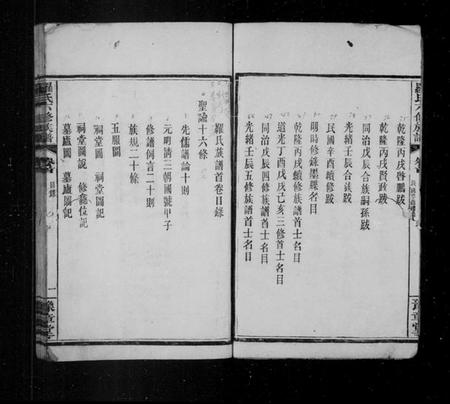 羅氏六修族譜
卷首
乾隆丙戌啓鵬跋
乾隆丙戌賢政跋
同治戊辰合族嗣孫跋
光緒壬辰合族跋
民國辛酉續修跋
明時修錄墨譜名目
乾隆丙戌續修族譜首士名目
道光丁酉戊戌己亥三修首士名目
同治戊辰四修族譜首士名目
光緒壬辰五修族譜首士名目
豫章堂
羅氏族譜首卷目錄
聖諭十六條
先儒譜論十則
元明清三朝國號甲子
修譜例言二十則
族規二十條
五服圖
祠堂圖 祠堂圖記
祠堂圖說 修龕位記
墓廬圖 墓廬圖記
羅氏六修族譜
卷首
目錄
一
豫章堂